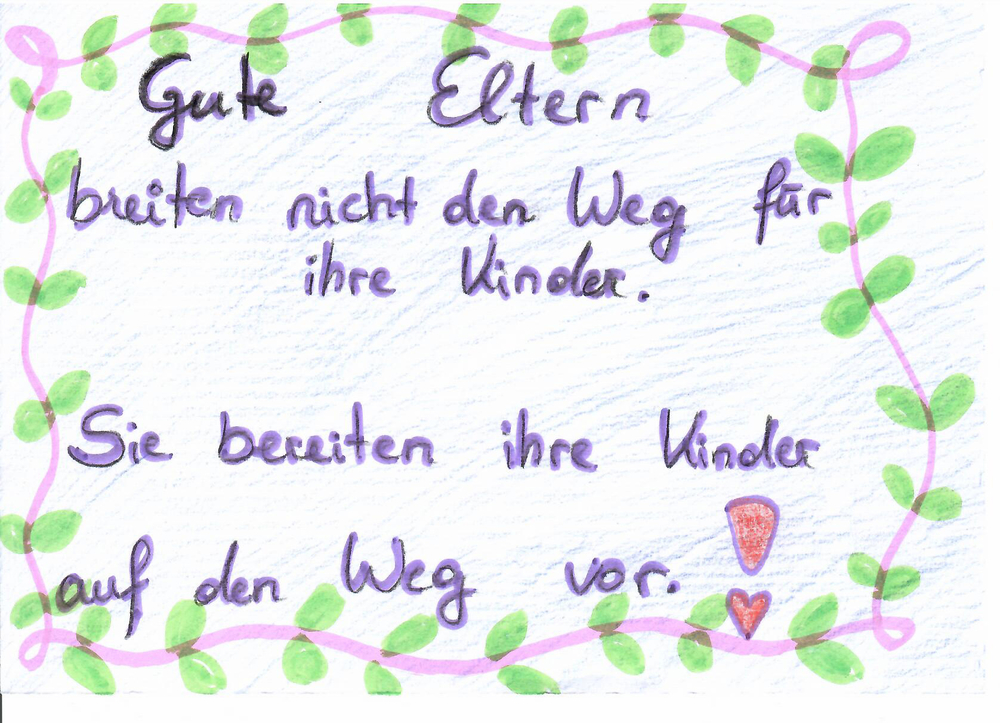 Gute Eltern
breiten nicht den Weg für
ihre Kinder.
Sie bereiten ihre Kinder
auf den Weg vor.